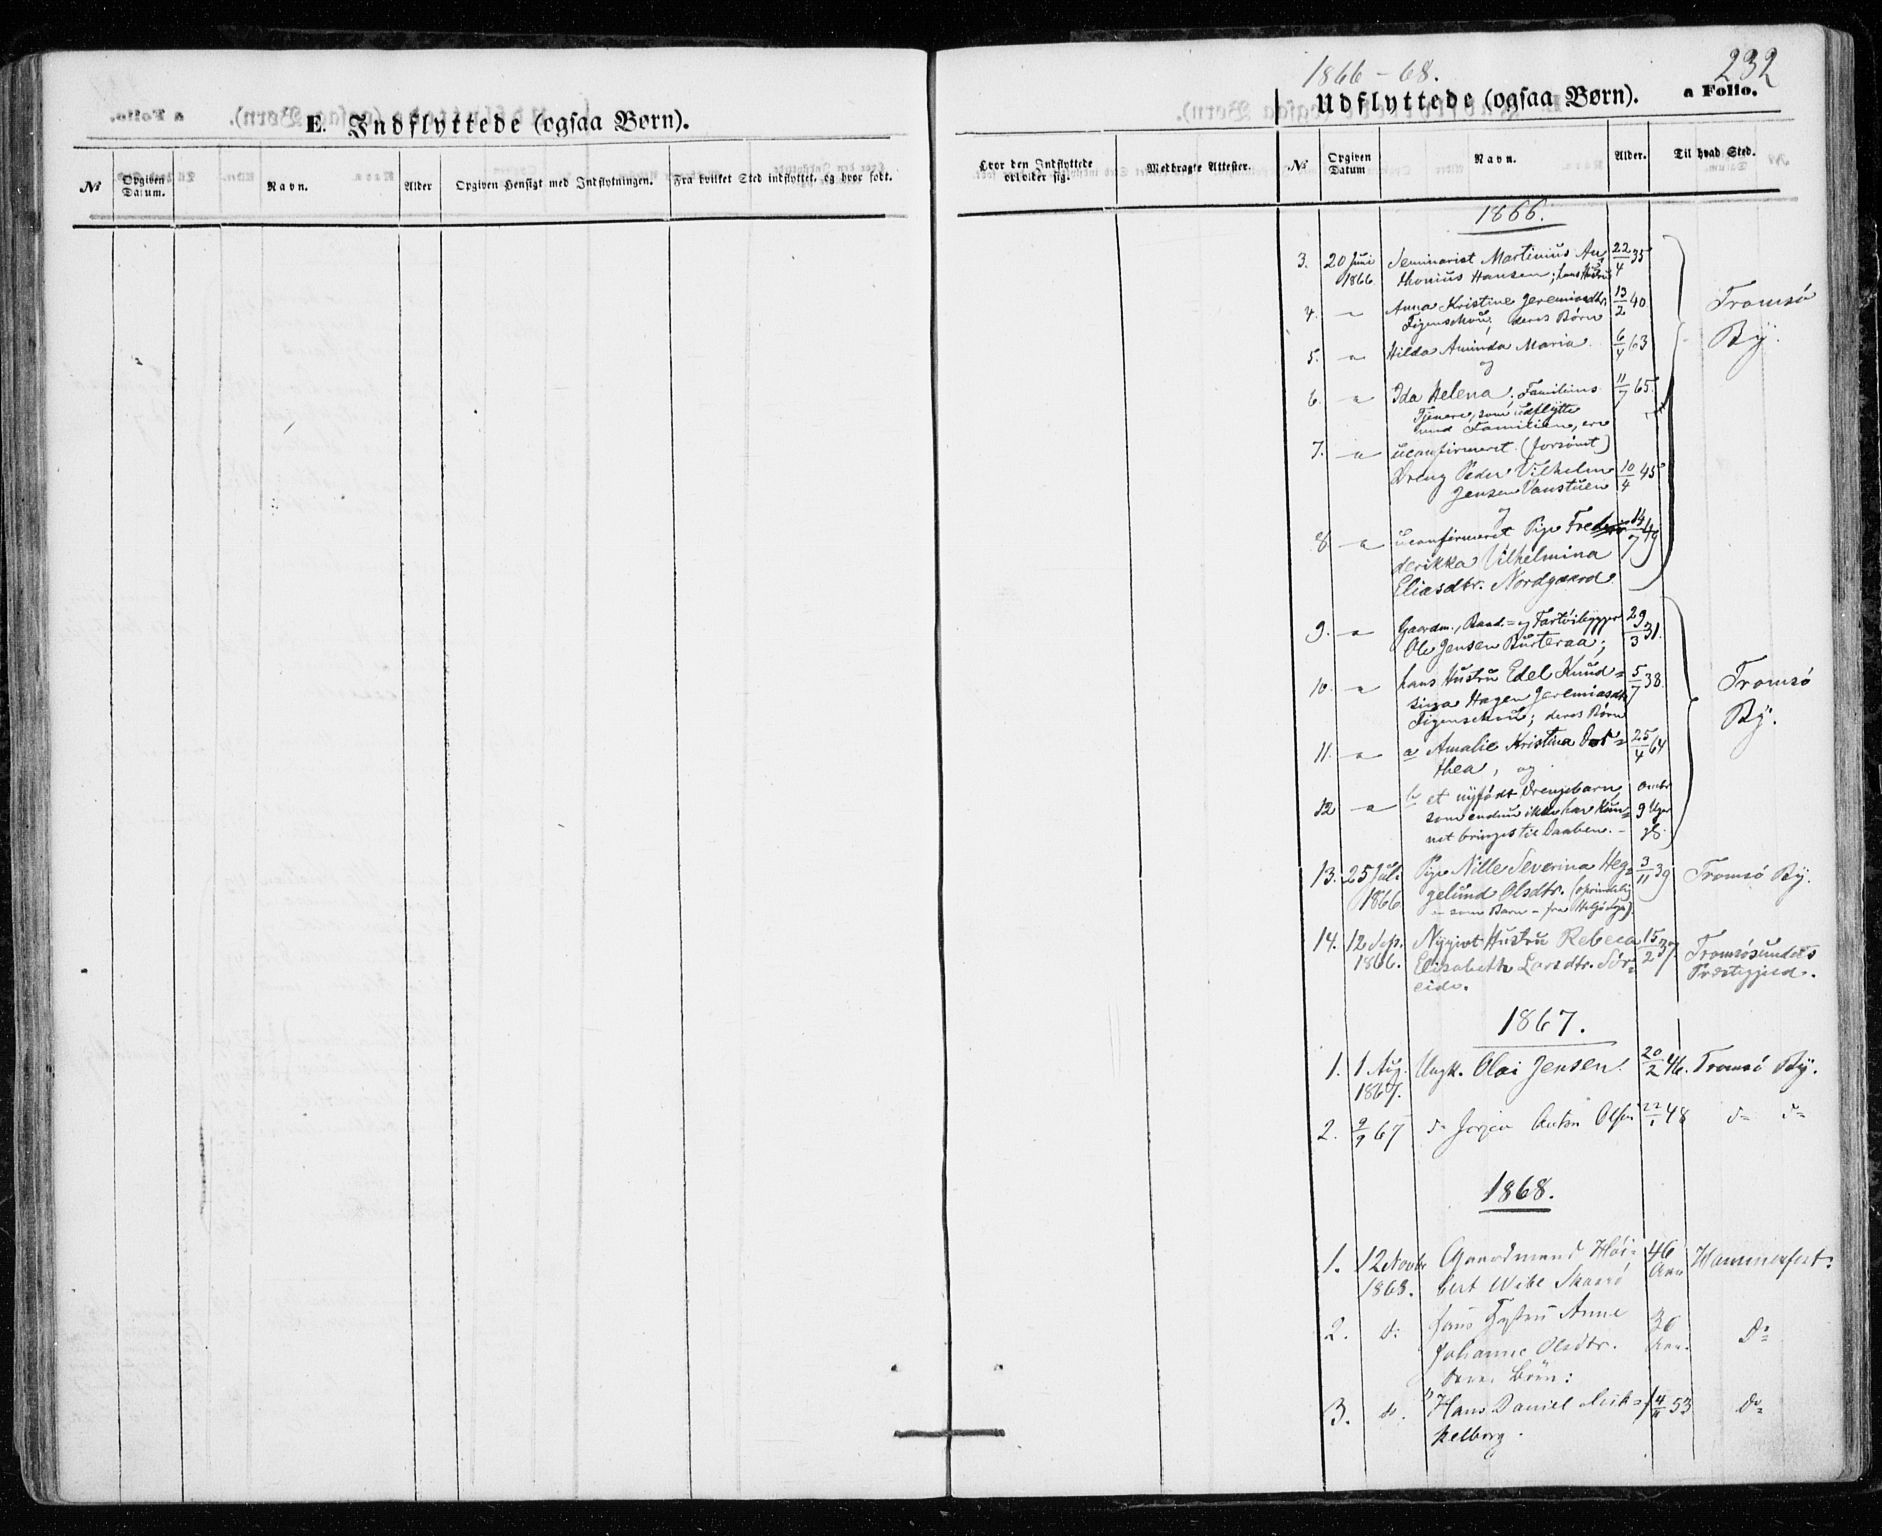 E. Indflyttede (ogsaa Børn).
No
Opgiven Datum.
Navn.
Alder
Opgiven Hensigt med Indflytningen.
Fra hvilket Sted indflyttet, og hvor født.
1866-68.
232
Udflyttede (ogsaa Børn).
a Folio.
Hvor den Indflyttede opholder sig.
Medbragte Attester.
No
Opgiven Datum
Navn.
Alder.
Til hvad Sted.
1866.
3. 20 Juni Seminarist Martinius An= 22/4 35
1866 thonius Hansen; hans Hustru
4. — " — Anna Kristine Jeremiasdtr. 13/2 40 Tromsø
Figenschou; deres Børn
5. — " — Hilda Aminda Maria. 6/4 63 By.
og
6. — " — Ida Helena; Familiens 11/7 65.
Tjenere, som udflytte
med Familien, ere
7. — " — uconfirmeret (forsømt)
Dreng Peder Vilhelm 10/4 45
Jensen Vanstuen
og
8 — " — uconfirmeret Pige Fred 14/7 49
derikka Vilhelmina
Eliasdtr. Nordgaard.
9. — " — Gaardm., Baad- og Fartøibygger 29/3 31.
Ole Jensen Burteraa;
10. — " — hans Hustru Edel Knud= 5/7 38. Tromsø
sina Hagen Jeremiasdtr.
Figenschou; deres Børn By.
11. — " — a Amalie Kristina Dor= 25/4 64
thea, og
12 — " — b et nyfødt Drengebarn omtr
som endnu ikke har kun= 9 Uger
net bringes til Daaben. — gl.
13. 25 Juli Pige Nille Severina Heg= 3/11 39 Tromsø By.
1866 gelund Olsdtr. (oprindelig
— som Barn — fra
14. 12 Sep. Nygivt Hustru Rebeca 15/2 37. Tromsøsundets
1866. Elisabeth Larsdtr. Sør= Præstegjeld.
eide.
1867.
1. 1 Aug. Ungk. Olai Jensen. 20/2 46. Tromsø By.
1867.
2. 9/9 67 do Jørgen Anton Olsen 22/1 48 do do
1868.
1. 12 Novbr Gaardmand Høi= 46 Hammerfest.
1868. bert Wibe Skaarø Aar
2. do hans Hustru Anne 36 Do
Johanne Olsdtr. Aar.
deres Børn:
3. do. 1) Hans Daniel 14/11 53 Do
kelborg.